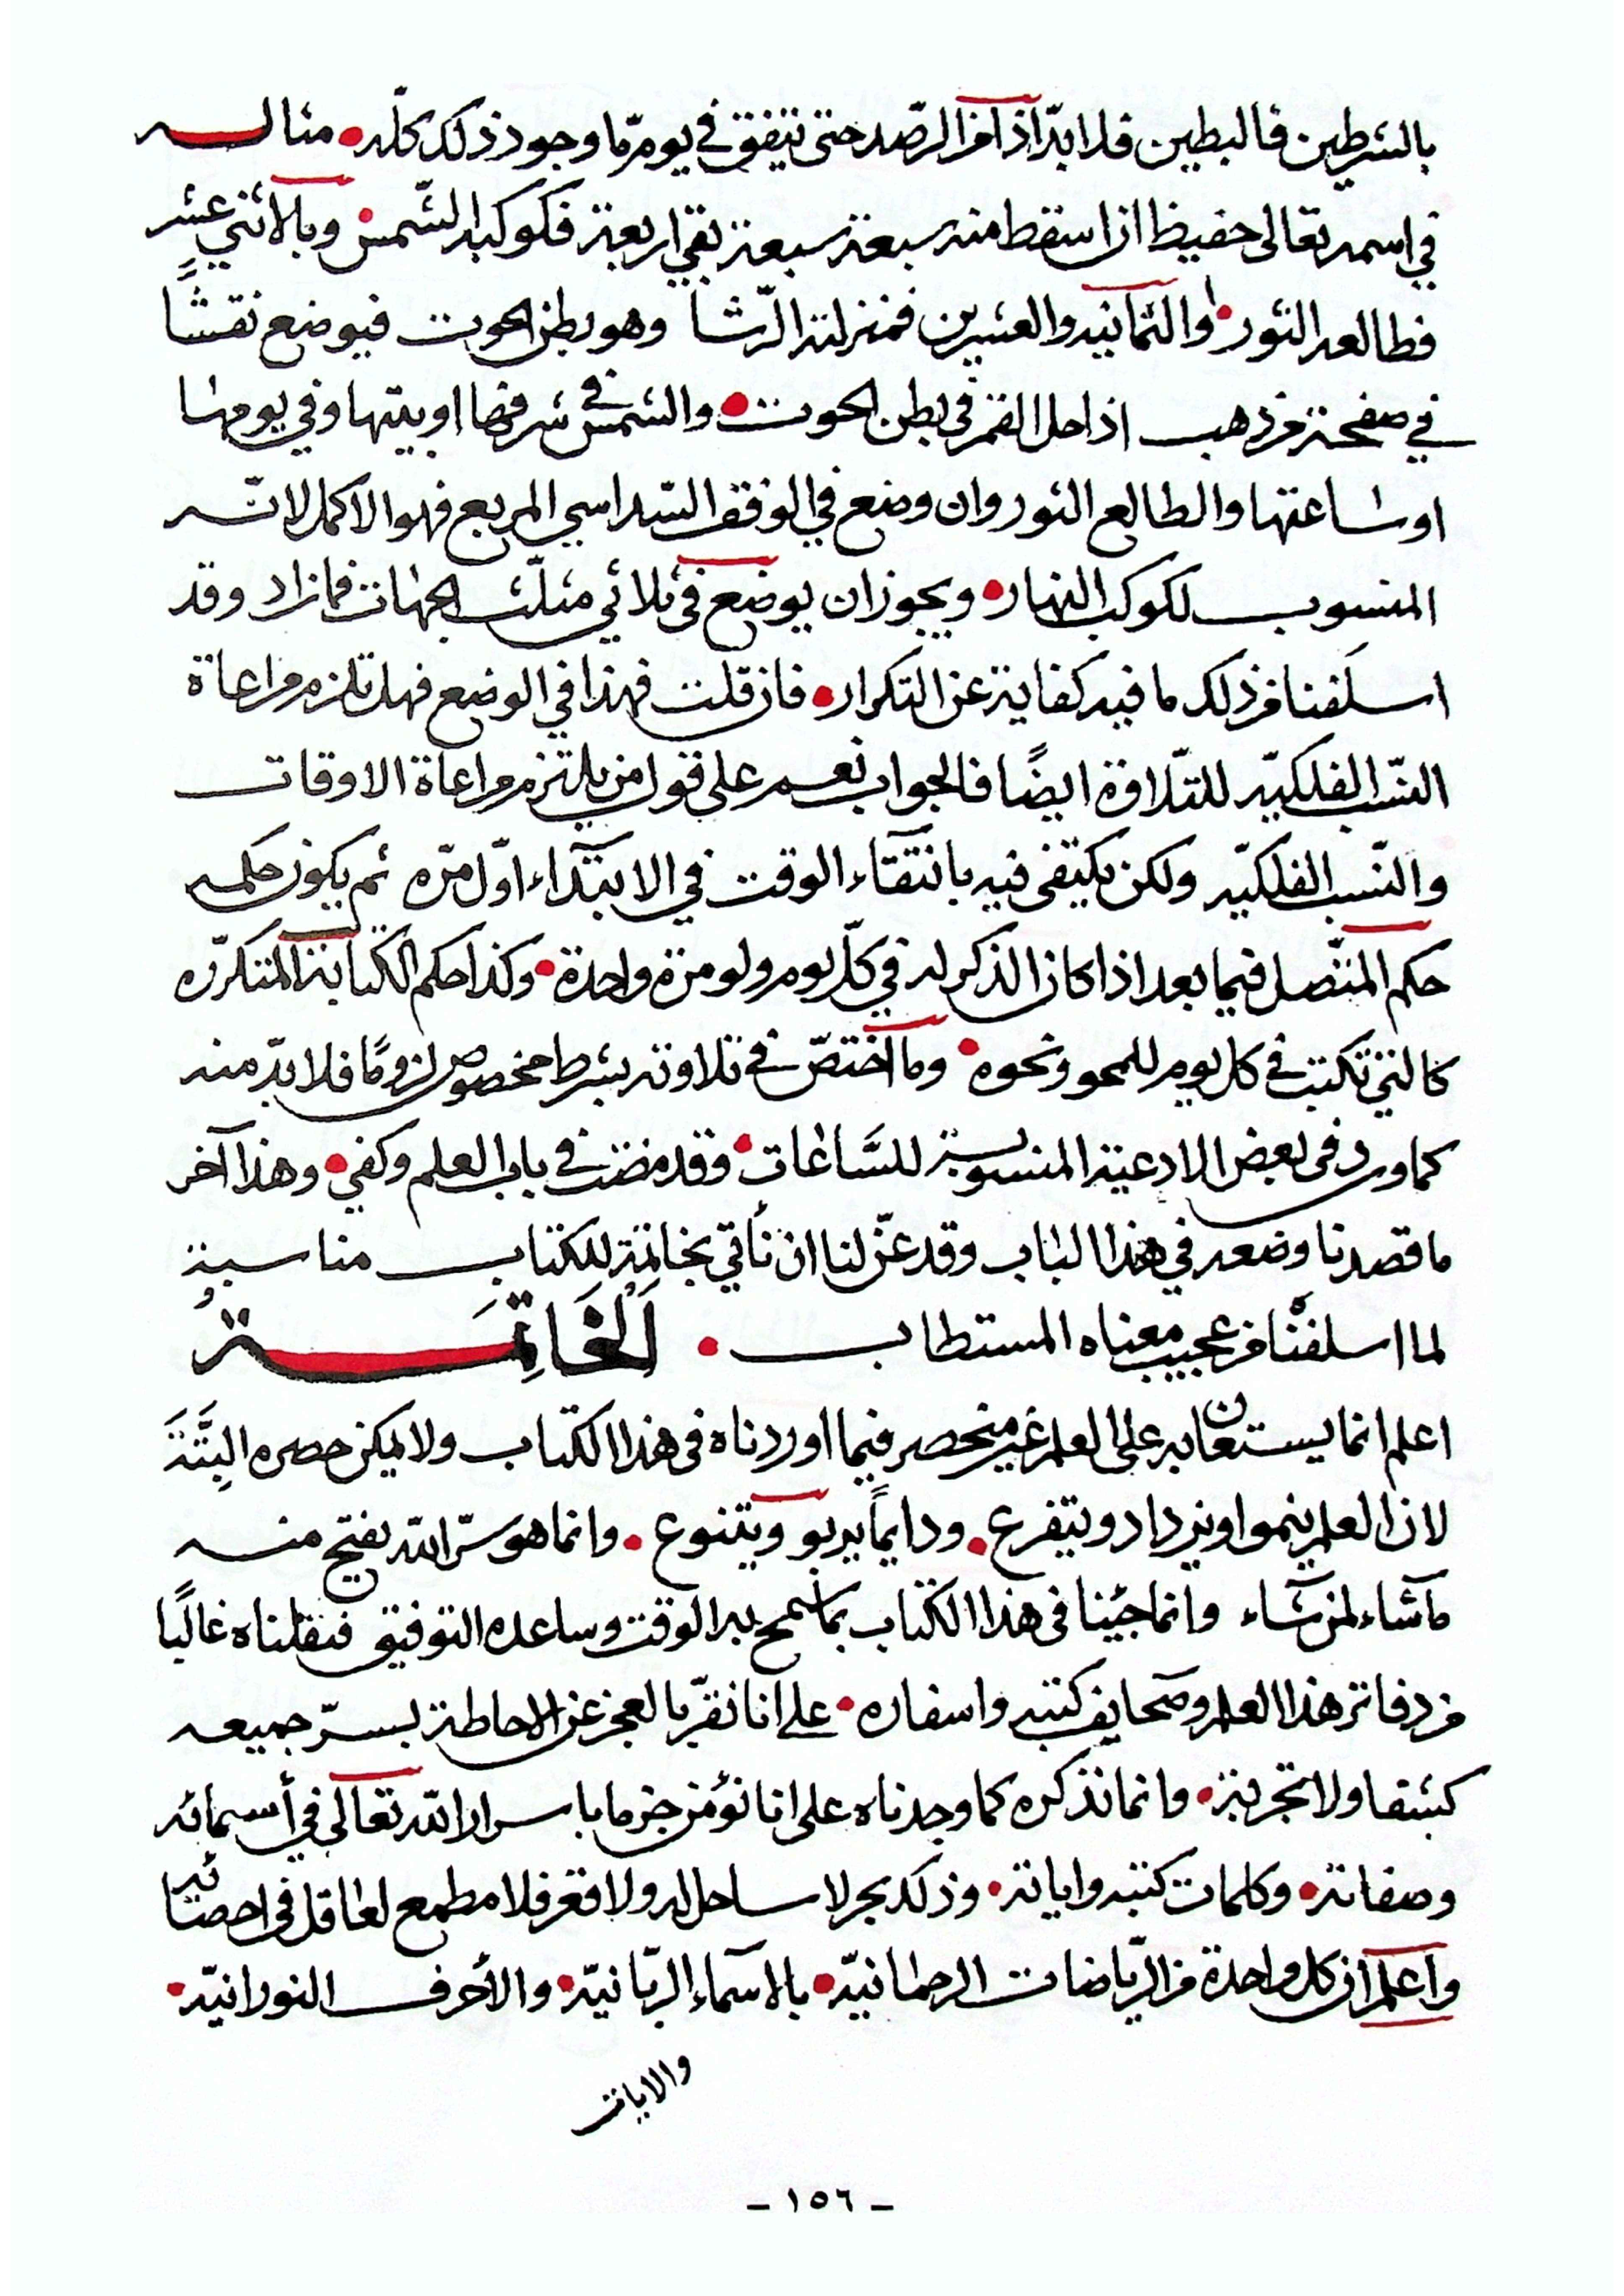 بالشرطين فالبطين فلا بدّ اذا من الرّصد حتى يتفق في يوم مّا وجود ذلك كلّه • مثاله
في اسمه تعالى حفيظ ان اسقط منه سبعة سبعة بقى اربعة فكوكبه الشّمس • وبالاثني عشر
فطالعه الثور • والثمانيه والعشرين فمنزلته الرّشا وهو بطن الحوت فيوضع نقشًا
في صفحة من ذهب اذا حل القمر في بطن الحوت • والشمس في شرفها او بيتها وفي يومها
او ساعتها والطالع الثور وان وضع في الوفق السّداسي المربع فهو الاكمل لانّه
المنسوب لكوكب النهار • ويجوز ان يوضع في ثلاثي مثلّث الجهات فما زاد وقد
اسلفنا من ذلك ما فيه كفاية عن التكرار • فان قلت فهذا في الوضع فهل تلزم مراعاة
النّسب الفلكيّه للتّلاوة ايضًا فالجواب نعم على قول من يلتزم مراعاة الاوقات
والنّسب الفلكيّه ولكن يكتفى فيه بانتقاء الوقت في الابتدآء اوّل مرّه ثم يكون حكمه
حكم المتّصل فيما بعد اذا كان الذكر له في كلّ يوم ولو مرّة واحدة • وكذا حكم الكتابة المتكرّره
كالتي تكتب في كل يوم للمحو ونحوه • وما اختصّ في تلاوته بشرط مخصوص لزومًا فلا بدّ منه
كما ورد في بعض الادعية المنسوبة للسَّاعات • وقد مضت في باب العلم وكفى • وهذا آخر
ما قصدنا وضعه في هذا الباب وقد عنّ لنا ان نأتي بخاتمة للكتاب مناسبة
لما اسلفنا من عجيب معناه المستطاب • اَلْخَاتِمَةُ
اعلم انما يستعان به على العلم غير منحصر فيما اوردناه في هذا الكتاب ولا يمكن حصره البِتَّةَ
لان العلم ينموا ويزداد ويتفرع • ودايمًا يربو ويتنوع • وانما هو سرّ الله يفتح منه
مآشاء لمن شآء وانما جئنا في هذا الكتاب بما سمح به الوقت وساعده التوفيق فنقلناه غالبًا
من دفاتر هذا العلم وصحايف كتبه واسفاره • على انا نقرّ بالعجز عن الاحاطة بسرّ جميعه
كشفا ولا تجربة • وانما نذكره كما وجدناه على انا نؤمن جزما باسرار الله تعالى في أسمائه
وصفاته • وكلمات كتبه واياته • وذلك بحر لا ساحل له ولا قعر فلا مطمع لعاقل في احصائه
واعلم ان كل واحدة من الرّياضات الرحمانيّه • بالاسمآء الربّانيّه • والأحرف النورانيّه •
والايات
- ١٥٦ -